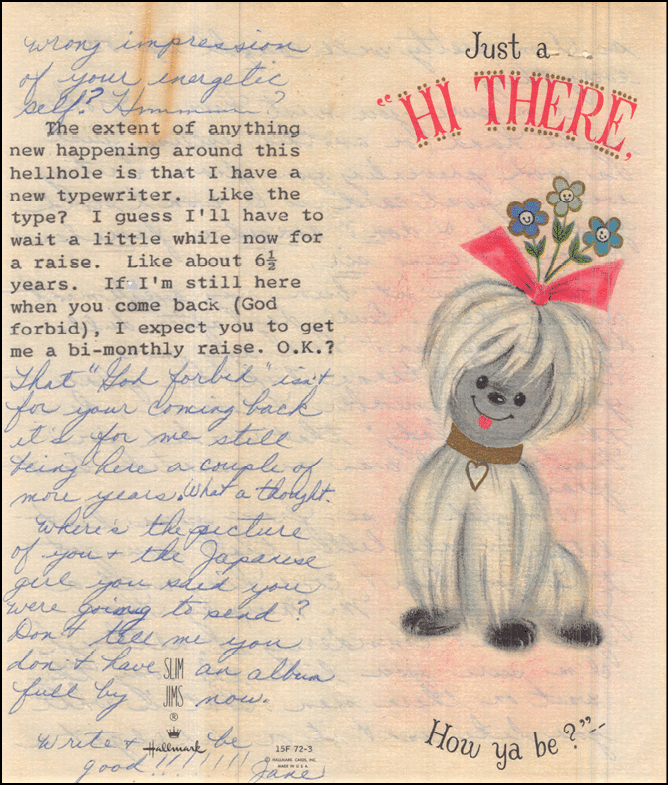 wrong impression
of your energetic
self? Hmmmm?
The extent of anything
new happening around this
hellhole is that I have a
new typewriter. Like the
type? I guess I'll have to
wait a little while now for
a raise. Like about 6½
years. If I'm still here
when you come back (God
forbid), I expect you to get
me a bi-monthly raise. O.K.?
That "God forbid" isn't
for your coming back
it's for me still
being here a couple of
more years. What a thought.
Where's the picture
of you + the Japanese
girl you said you
were going to send?
Don't tell me you
don't have an album
full by now.
Write + be
good!!!!!!!! Jane
SLIM
JIMS
®
Hallmark
15F 72-3
© HALLMARK CARDS, INC.
MADE IN U.S.A.
Just a--
"HI THERE,
How ya be?"--